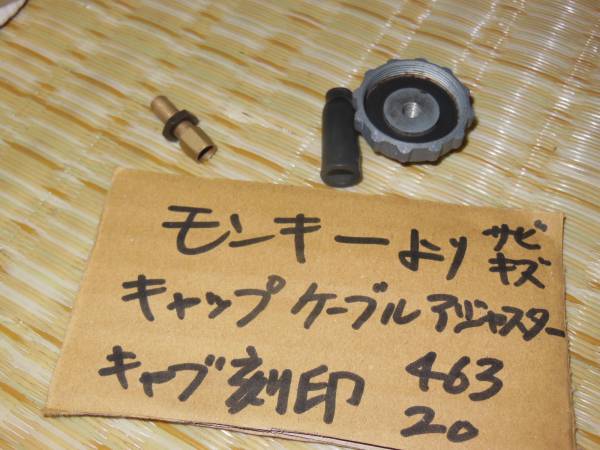 モンキーより サビ キズ
キャップ ケーブル アジャスター
キャブ刻印 463
20